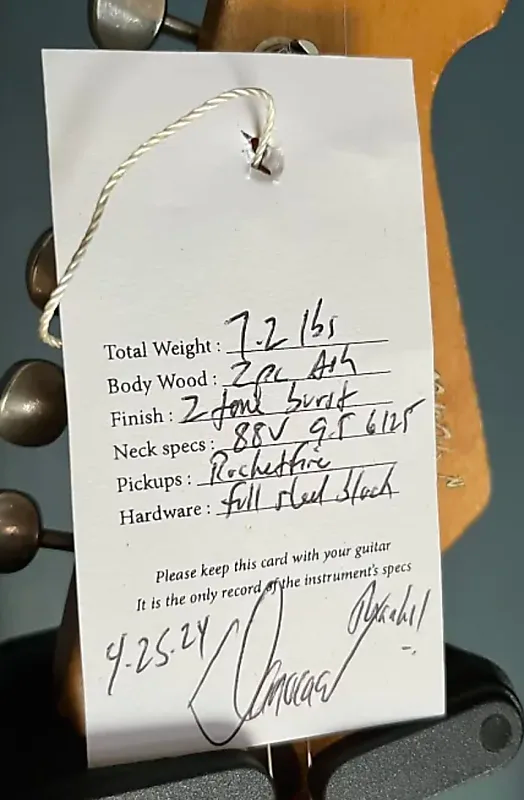 Total Weight : 7.2 lbs
Body Wood : 2 pc Ash
Finish : 2 tone burst
Neck specs : .88V 9.5 6125
Pickups : Rocketfire
Hardware : full steel block
Please keep this card with your guitar
It is the only record of the instrument's specs
4-25-24